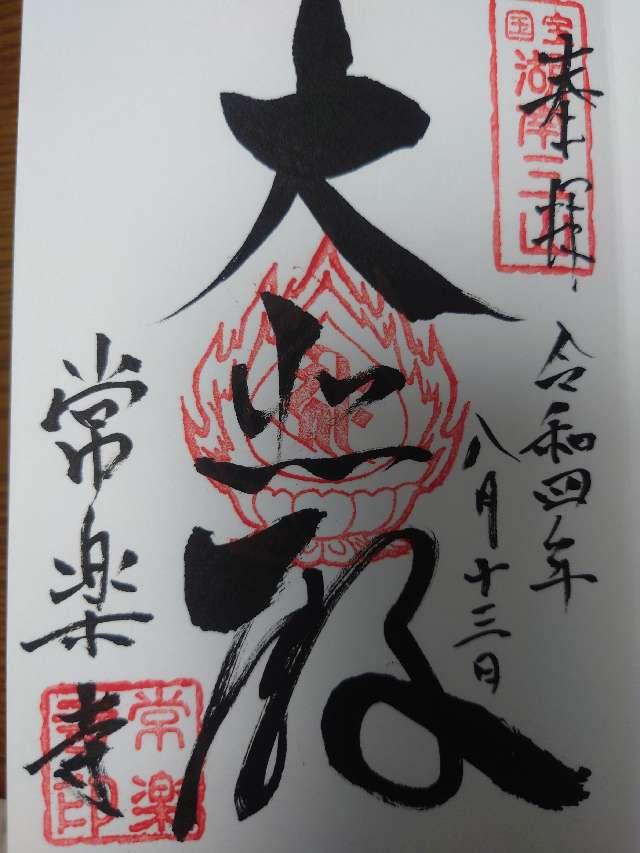 奉拝
国宝
湖南三山
令和四年
八月十三日
大悲殿
常楽寺
常楽
寺印